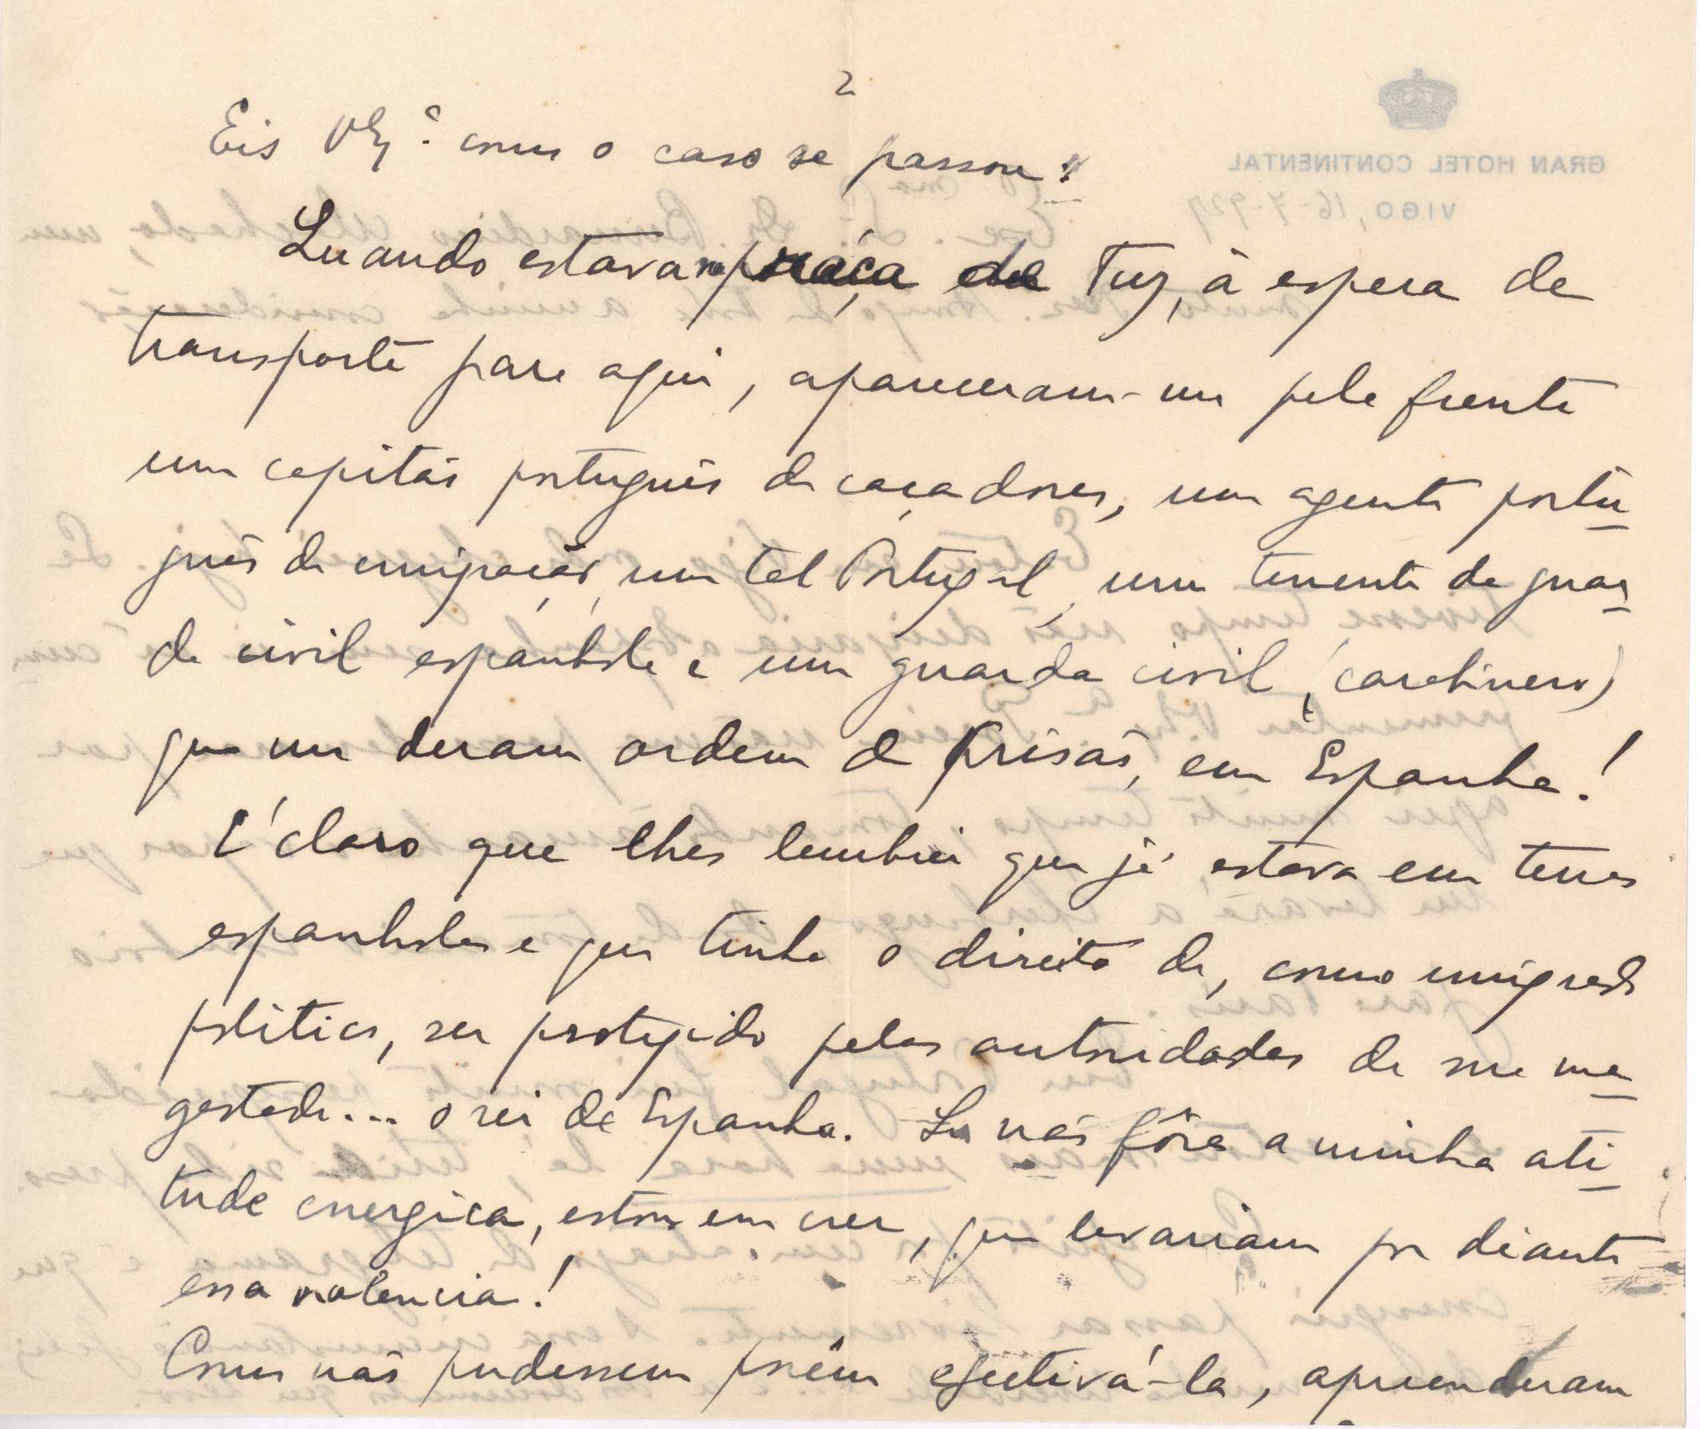 2
GRAN HOTEL CONTINENTAL
VIGO, 16-7-929
Eis como o caso se passou:
Quando estava na praça de Tuy, à espera de
transporte para aqui, apareceram-me pela frente
um capitão português de caçadores, um agente portu-
guês da emigração, um tal Portugal, um tenente da guar-
da civil espanhola e um guarda civil (carabinero)
que me deram ordem de prisão, em Espanha!
É claro que lhes lembrei que já estava em terras
espanholas e que tinha o direito de, como emigrado
politico, ser protegido pelas autoridades de sua ma-
gestade... o rei de Espanha. Se não fôra a minha ati-
tude energica, estou em crer, que levariam por diante
essa violencia!
Como não pudessem porém efectivá-la, apreenderam